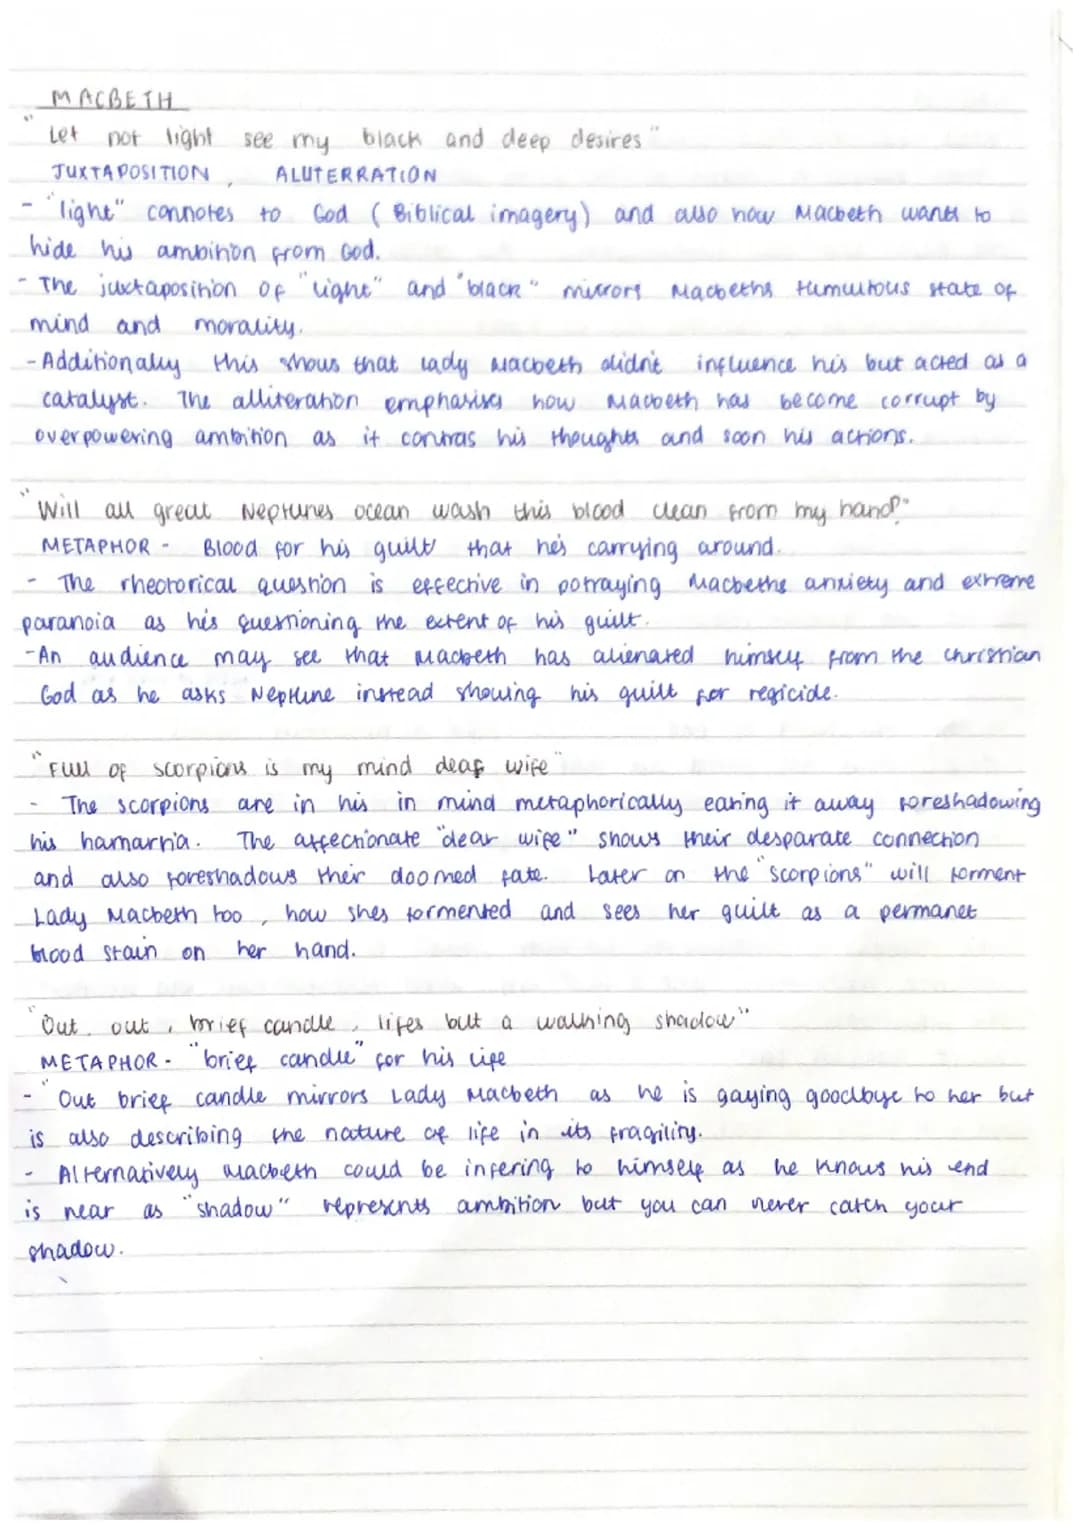 MACBETH
"Let not light see my black and deep desires"
JUXTAPOSITION, ALUTERRATION
- "light" connotes to God (Biblical imagery) and also how Macbeth wants to
hide his ambition from God.
- The juxtaposition of "light" and "black" mirrors Macbeths tumultous state of
mind and morality.
- Additionally this shows that Lady Macbeth didn't influence his but acted as a
catalyst. The alliteration emphasises how Macbeth has become corrupt by
overpowering ambition as it contras his thoughts and soon his actions.
"Will all great Neptunes ocean wash this blood clean from my hand?"
METAPHOR - Blood for his guilt that he's carrying around.
- The rheotorical question is effective in potraying Macbeths anxiety and extreme
paranoia as he's questioning the extent of his guilt.
- An audience may see that Macbeth has alienated himself from the Christian
God as he asks Neptune instead showing his guilt for regicide.
"Full of scorpions is my mind dear wife"
- The scorpions are in his in mind metaphorically eating it away foreshadowing
his hamartia. The affectionate "dear wife" shows their desparate connection
and also foreshadows their doomed fate. Later on the "scorpions" will torment
Lady Macbeth too, how shes tormented and sees her guilt as a permanet
blood stain on her hand.
"Out, out, brief candle, lifes but a walking shadow"
METAPHOR - "brief candle" for his life
- "Out brief candle mirrors Lady Macbeth as he is gaying goodbye to her but
is also describing the nature of life in its fragility.
- Alternatively Macbeth could be infering to himself as he knows his end
is near as "shadow" represents ambition but you can never catch your
shadow.